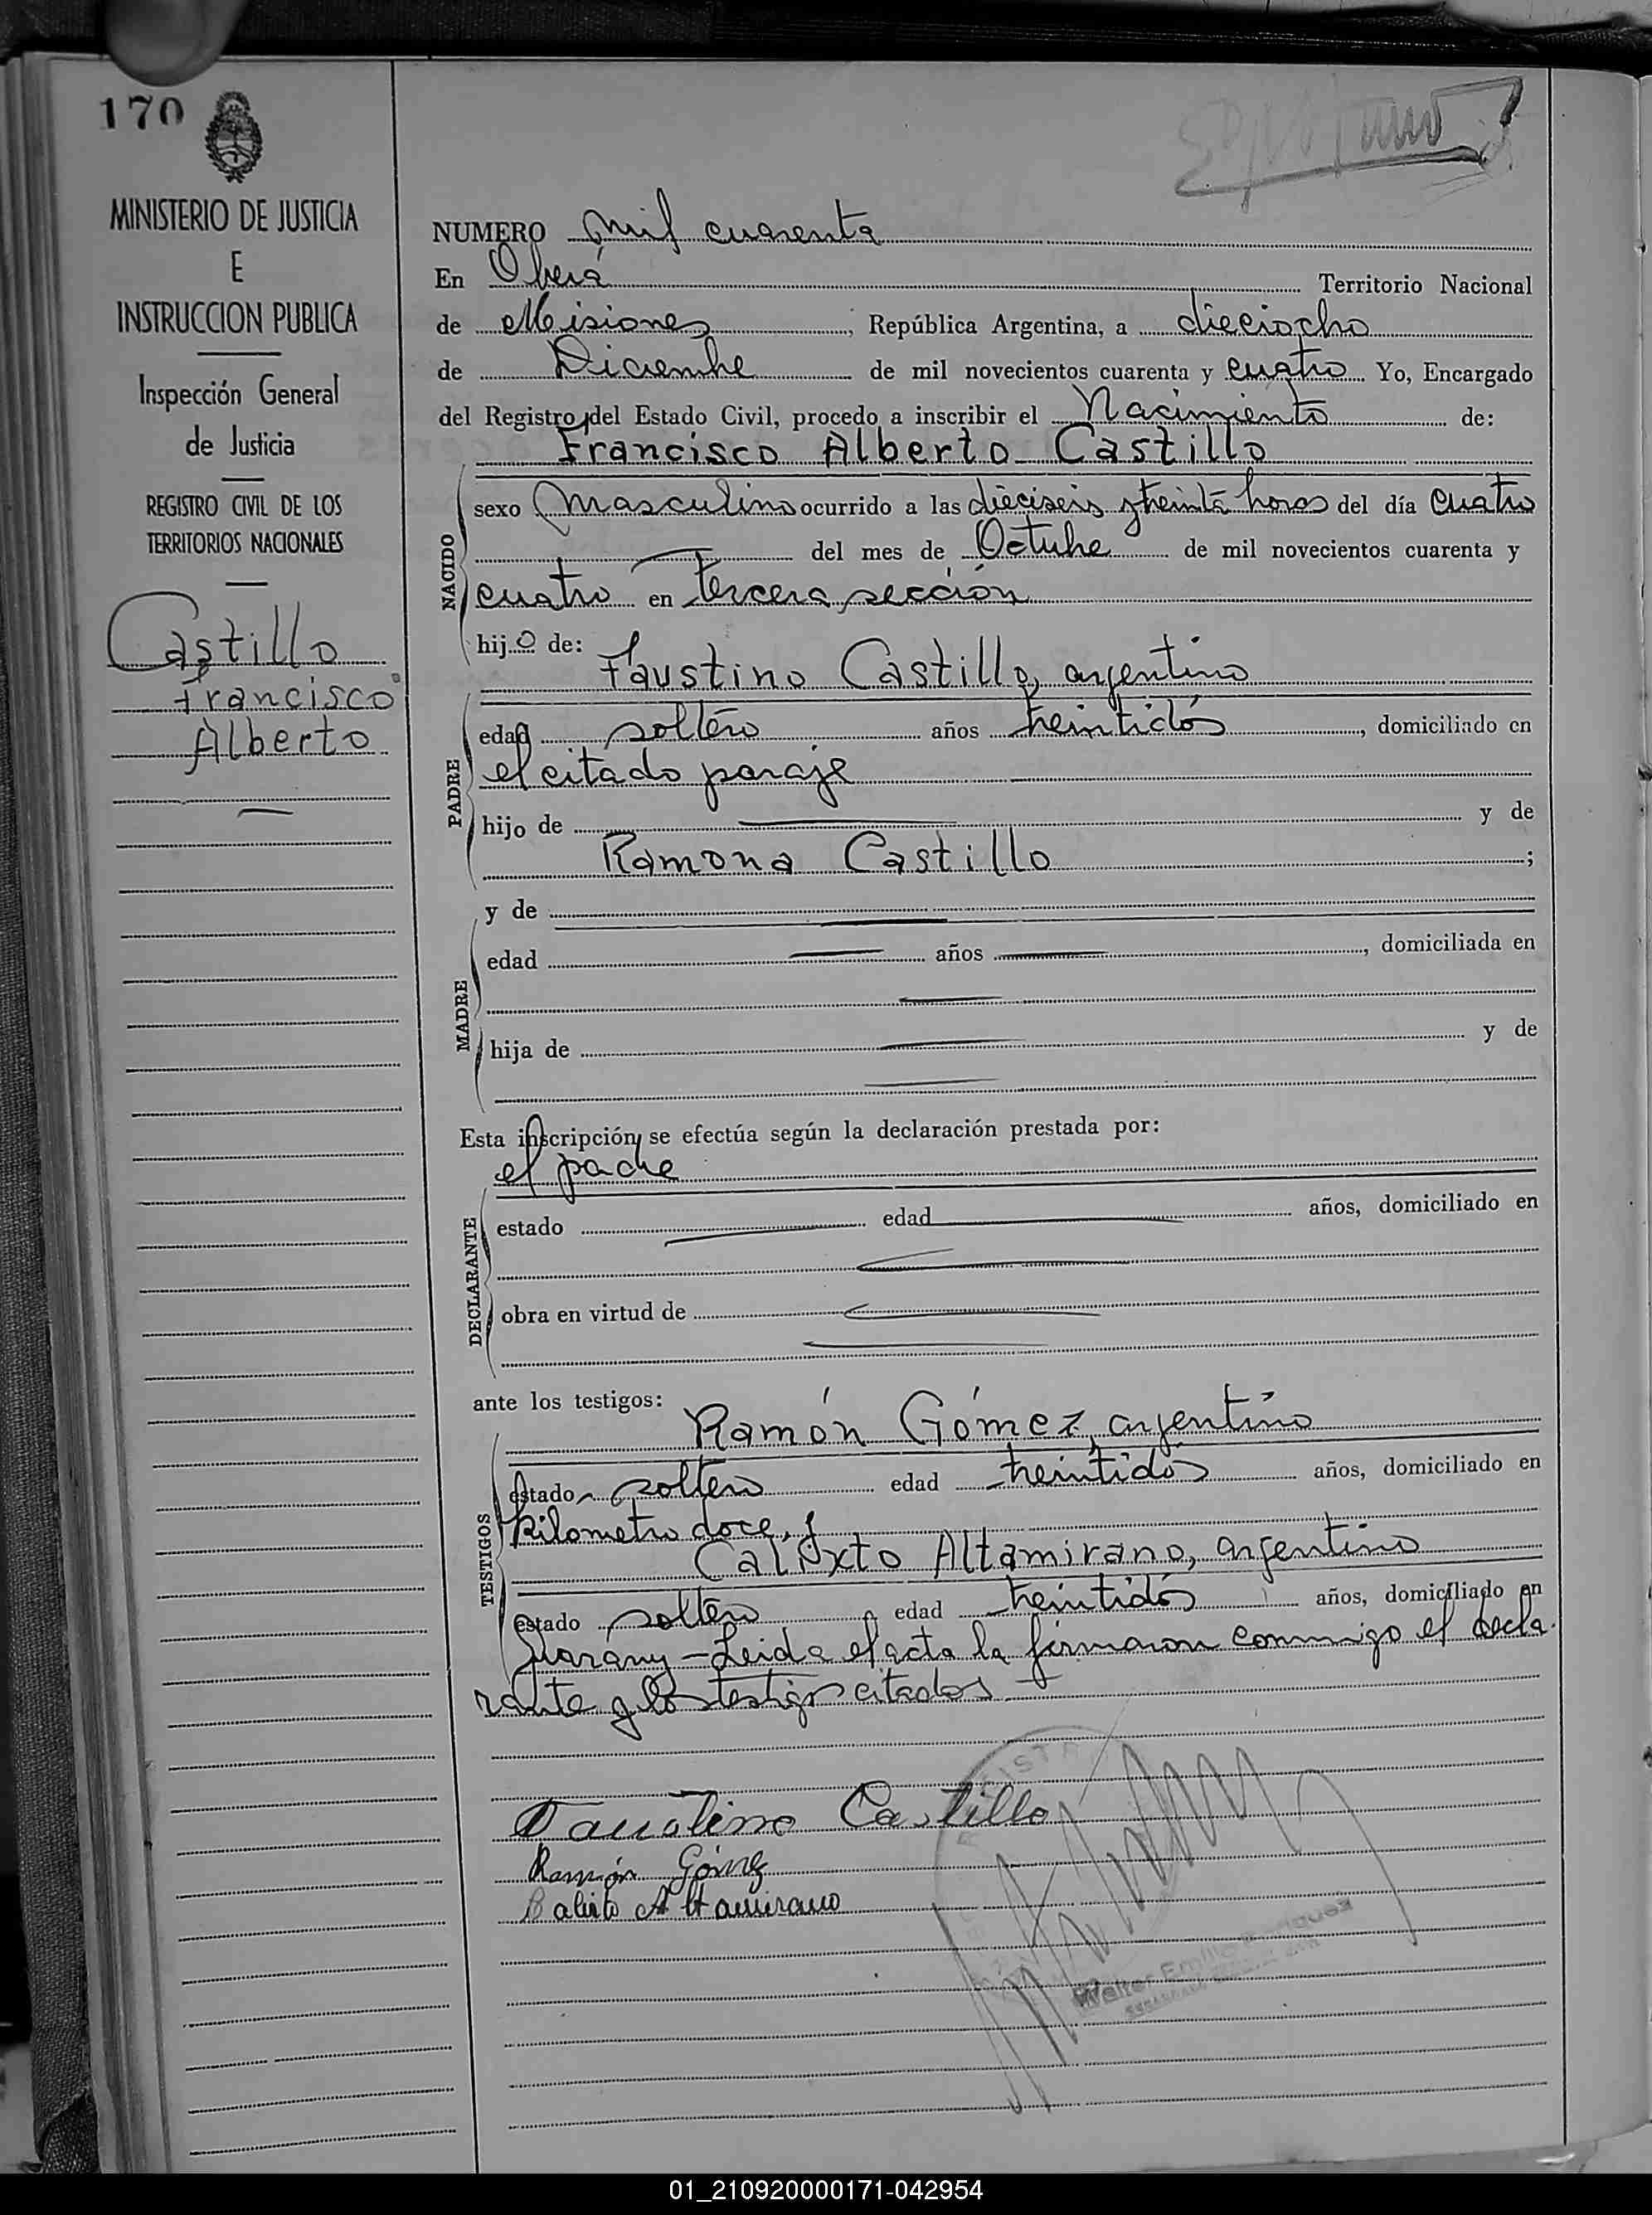 170
MINISTERIO DE JUSTICIA
E
INSTRUCCION PUBLICA
Inspección General
de Justicia
REGISTRO CIVIL DE LOS
TERRITORIOS NACIONALES
Castillo
Francisco
Alberto
NUMERO mil cuarenta
En Oberá Territorio Nacional
de Misiones, República Argentina, a dieciocho
de Diciembre de mil novecientos cuarenta y cuatro Yo, Encargado
del Registro del Estado Civil, procedo a inscribir el Nacimiento de:
Francisco Alberto Castillo
NACIDO
sexo masculino ocurrido a las dieciseis y treinta horas del día cuatro
del mes de Octubre de mil novecientos cuarenta y
cuatro en tercera sección
hijo de:
Faustino Castillo, argentino
PADRE
edad soltero años treintidós, domiciliado en
el citado paraje
hijo de y de
Ramona Castillo;
y de
MADRE
edad años, domiciliada en
hija de y de
Esta inscripción se efectúa según la declaración prestada por:
el padre
DECLARANTE
estado edad años, domiciliado en
obra en virtud de
ante los testigos:
Ramón Gómez, argentino
TESTIGOS
estado soltero edad treintidós años, domiciliado en
kilometro doce, y
Calixto Altamirano, argentino
estado soltero edad treintidós años, domiciliado en
Guarany - Leida el acta la firmaron conmigo el decla-
rante y los testigos citados
Faustino Castillo
Ramón Gómez
Calixto Altamirano
Walter Emilio Rodriguez
01_210920000171-042954